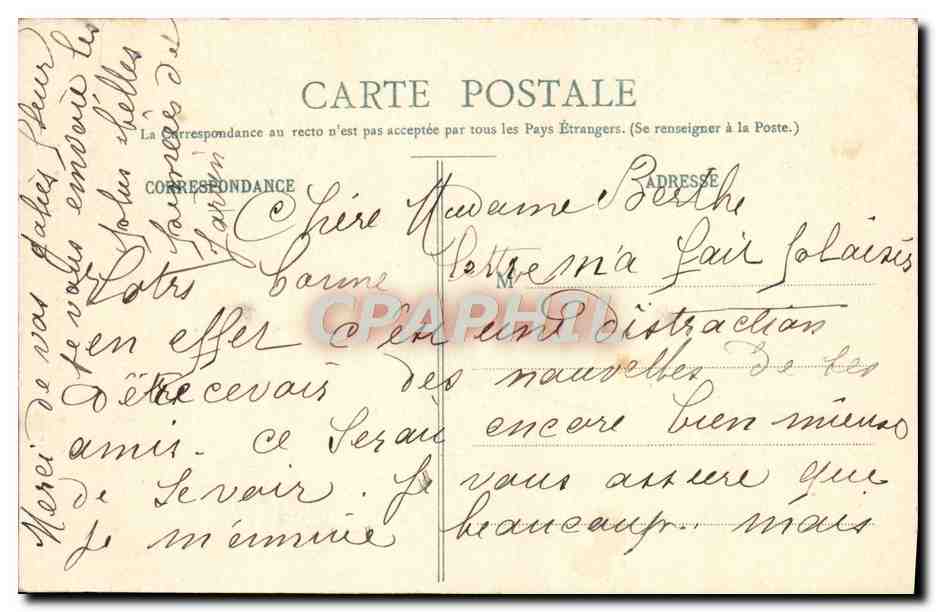 CARTE POSTALE
La Correspondance au recto n'est pas acceptée par tous les Pays Étrangers. (Se renseigner à la Poste.)
CORRESPONDANCE
ADRESSE
M
Chère Madame Berthe
Votre bonne lettre m'a fait plaisir
en effet c'est une distraction
de recevoir des nouvelles de ses
amis. ce serait encore bien mieux
de se voir. Je vous assure que
je m'ennuie beaucoup.. mais
Merci de vos jolies fleurs
je vous envoie les
plus belles
pensées de
CPAPHIL